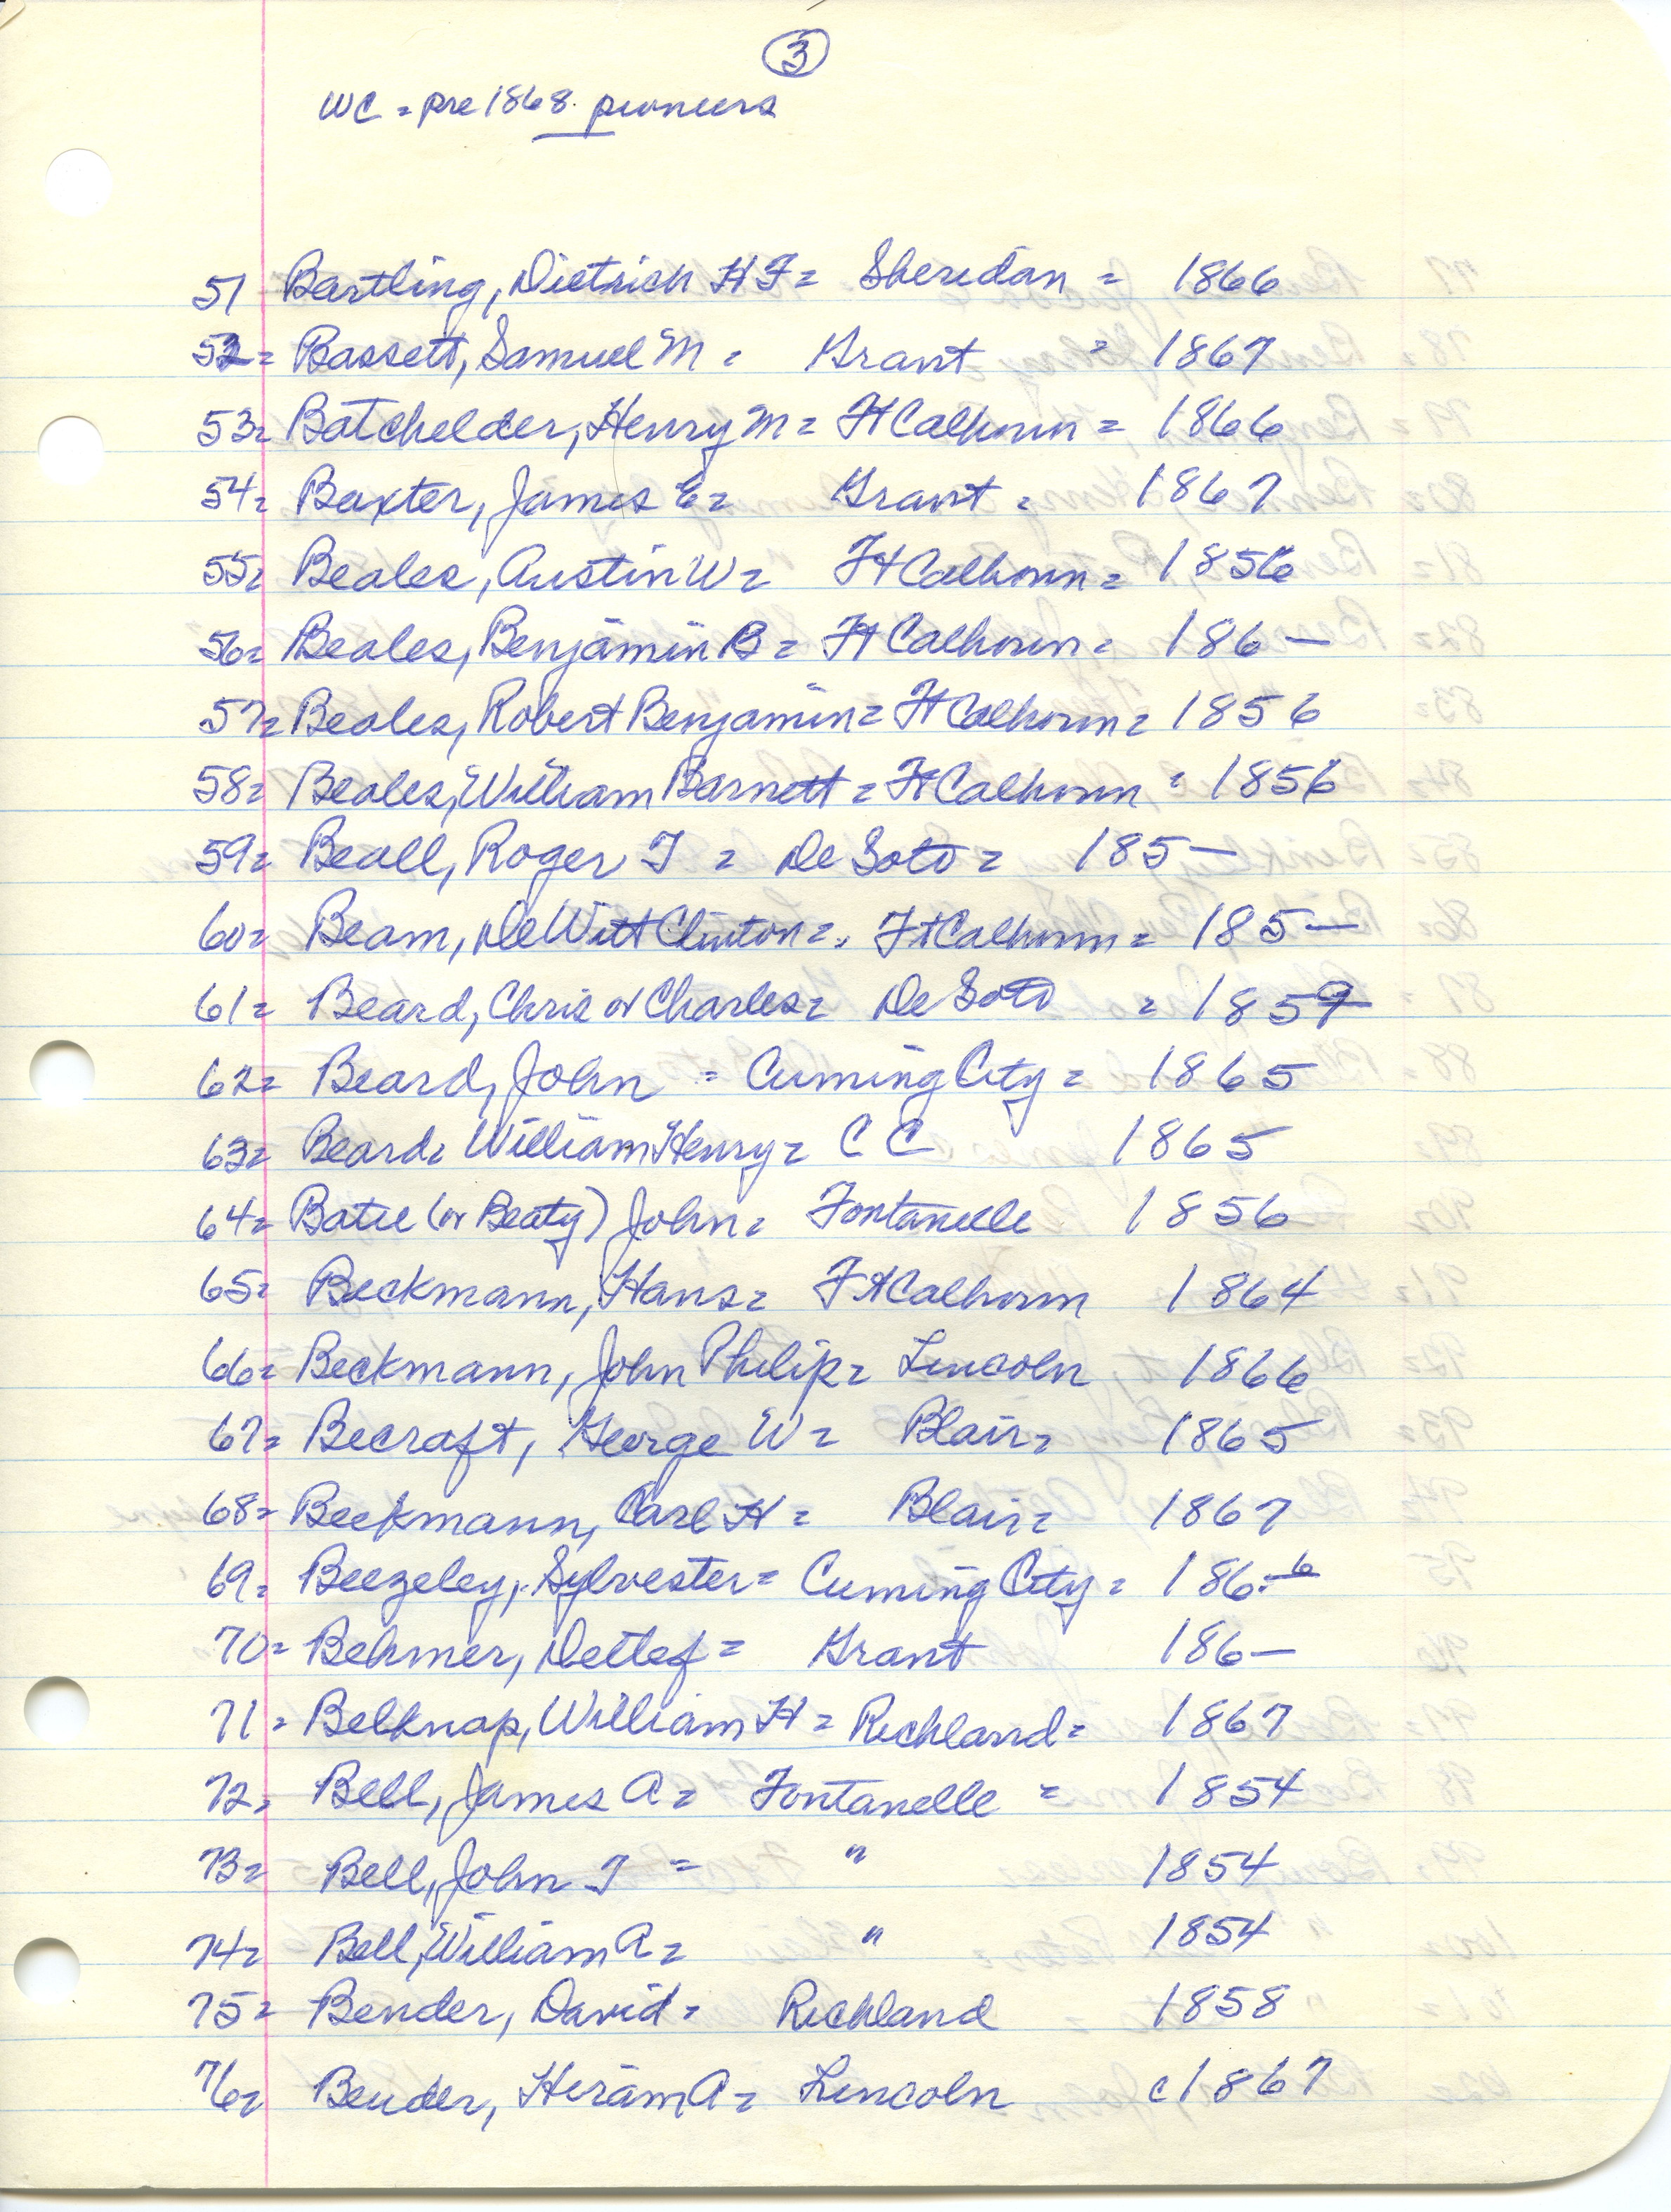 3
WC = pre 1868 pioneers
51 Bartling, Dietrich H F = Sheridan = 1866
52 = Bassett, Samuel M = Grant = 1867
53 = Batchelder, Henry M = Ft Calhoun = 1866
54 = Baxter, James E = Grant = 1867
55 = Beales, Austin W = Ft Calhoun = 1856
56 = Beales, Benjamin B = Ft Calhoun = 186—
57 = Beales, Robert Benjamin = Ft Calhoun = 1856
58 = Beales, William Barnett = Ft Calhoun = 1856
59 = Beall, Roger T = De Soto = 185—
60 = Beam, DeWitt Clinton = Ft Calhoun = 185—
61 = Beard, Chris or Charles = De Soto = 1859
62 = Beard, John = Cuming City = 1865
63 = Beard = William Henry = C C 1865
64 = Batie (or Beaty) John = Fontanelle 1856
65 = Beckmann, Hans = Ft Calhoun 1864
66 = Beckmann, John Philip = Lincoln 1866
67 = Becraft, George W = Blair = 1865
68 = Beekmann, Carl H = Blair = 1867
69 = Beezeley, Sylvester = Cuming City = 186-6
70 = Behmer, Detlef = Grant 186—
71 = Belknap, William H = Richland = 1867
72 = Bell, James A = Fontanelle = 1854
73 = Bell, John T = " 1854
74 = Bell, William A = " 1854
75 = Bender, David = Richland 1858
76 = Bender, Hiram A = Lincoln c 1867